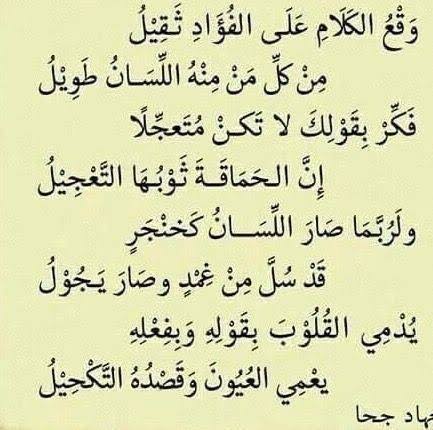 وَقْعُ الكَلَامِ عَلَى الفُؤَادِ ثَقِيْلُ
مِنْ كلِّ مَنْ مِنْهُ اللِّسَـانُ طَوِيْلُ
فَكِّرْ بِقَوْلِكَ لا تَكـنْ مُتَعجِّلًا
إِنَّ الحَمَاقَـةَ ثَوْبُهَا التَّعْجِيْلُ
ولَرُبَّمَا صَارَ اللِّسَــانُ كَخنْجَرٍ
قَدْ سُلَّ مِنْ غِمْدٍ وصَارَ يَـجُوْلُ
يُدْمِي القُلُوْبَ بِقَوْلِهِ وَبِفعْلِهِ
يعْمِي العُيُونَ وَقَصْدُهُ التَّكْحِيْلُ
جحا